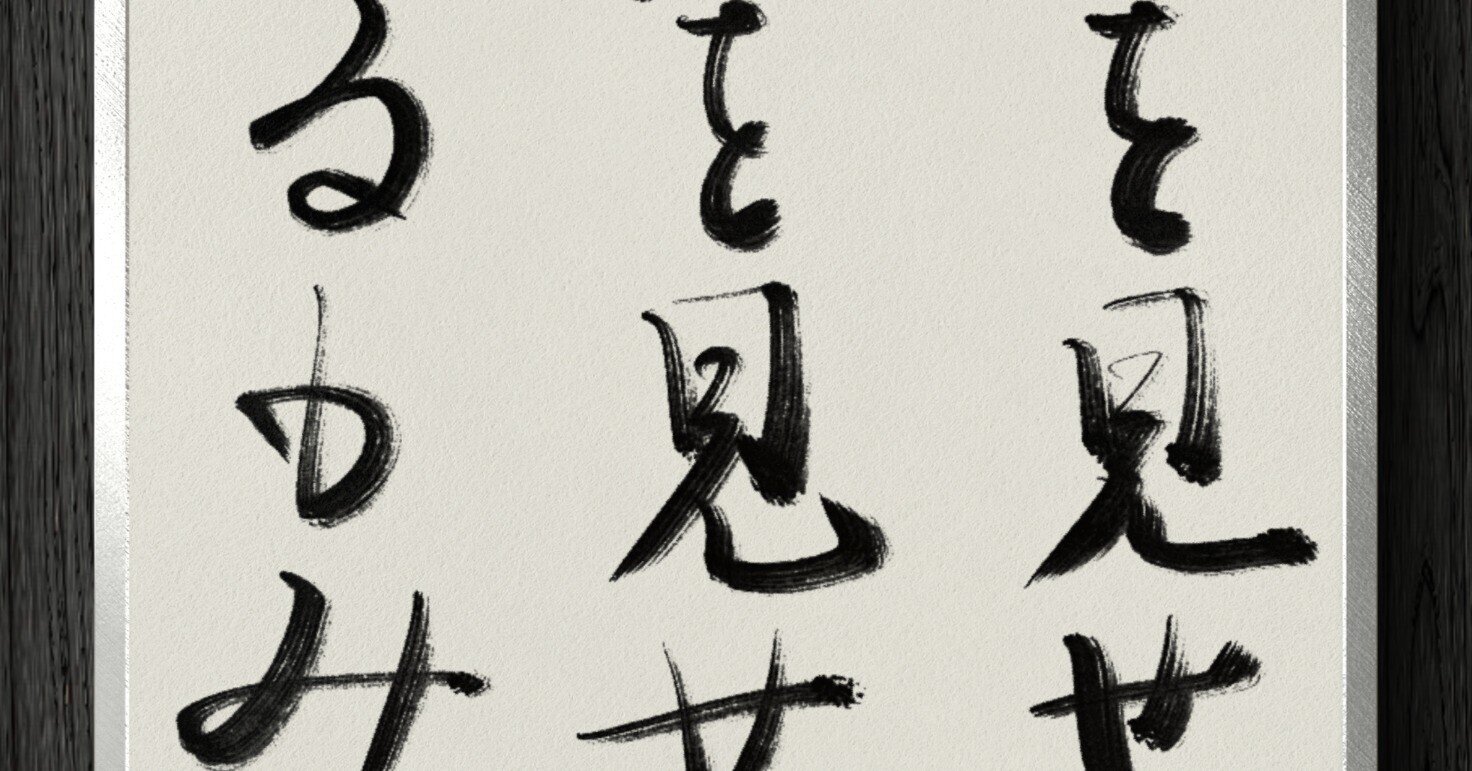 を見せ
を見せ
るもみ